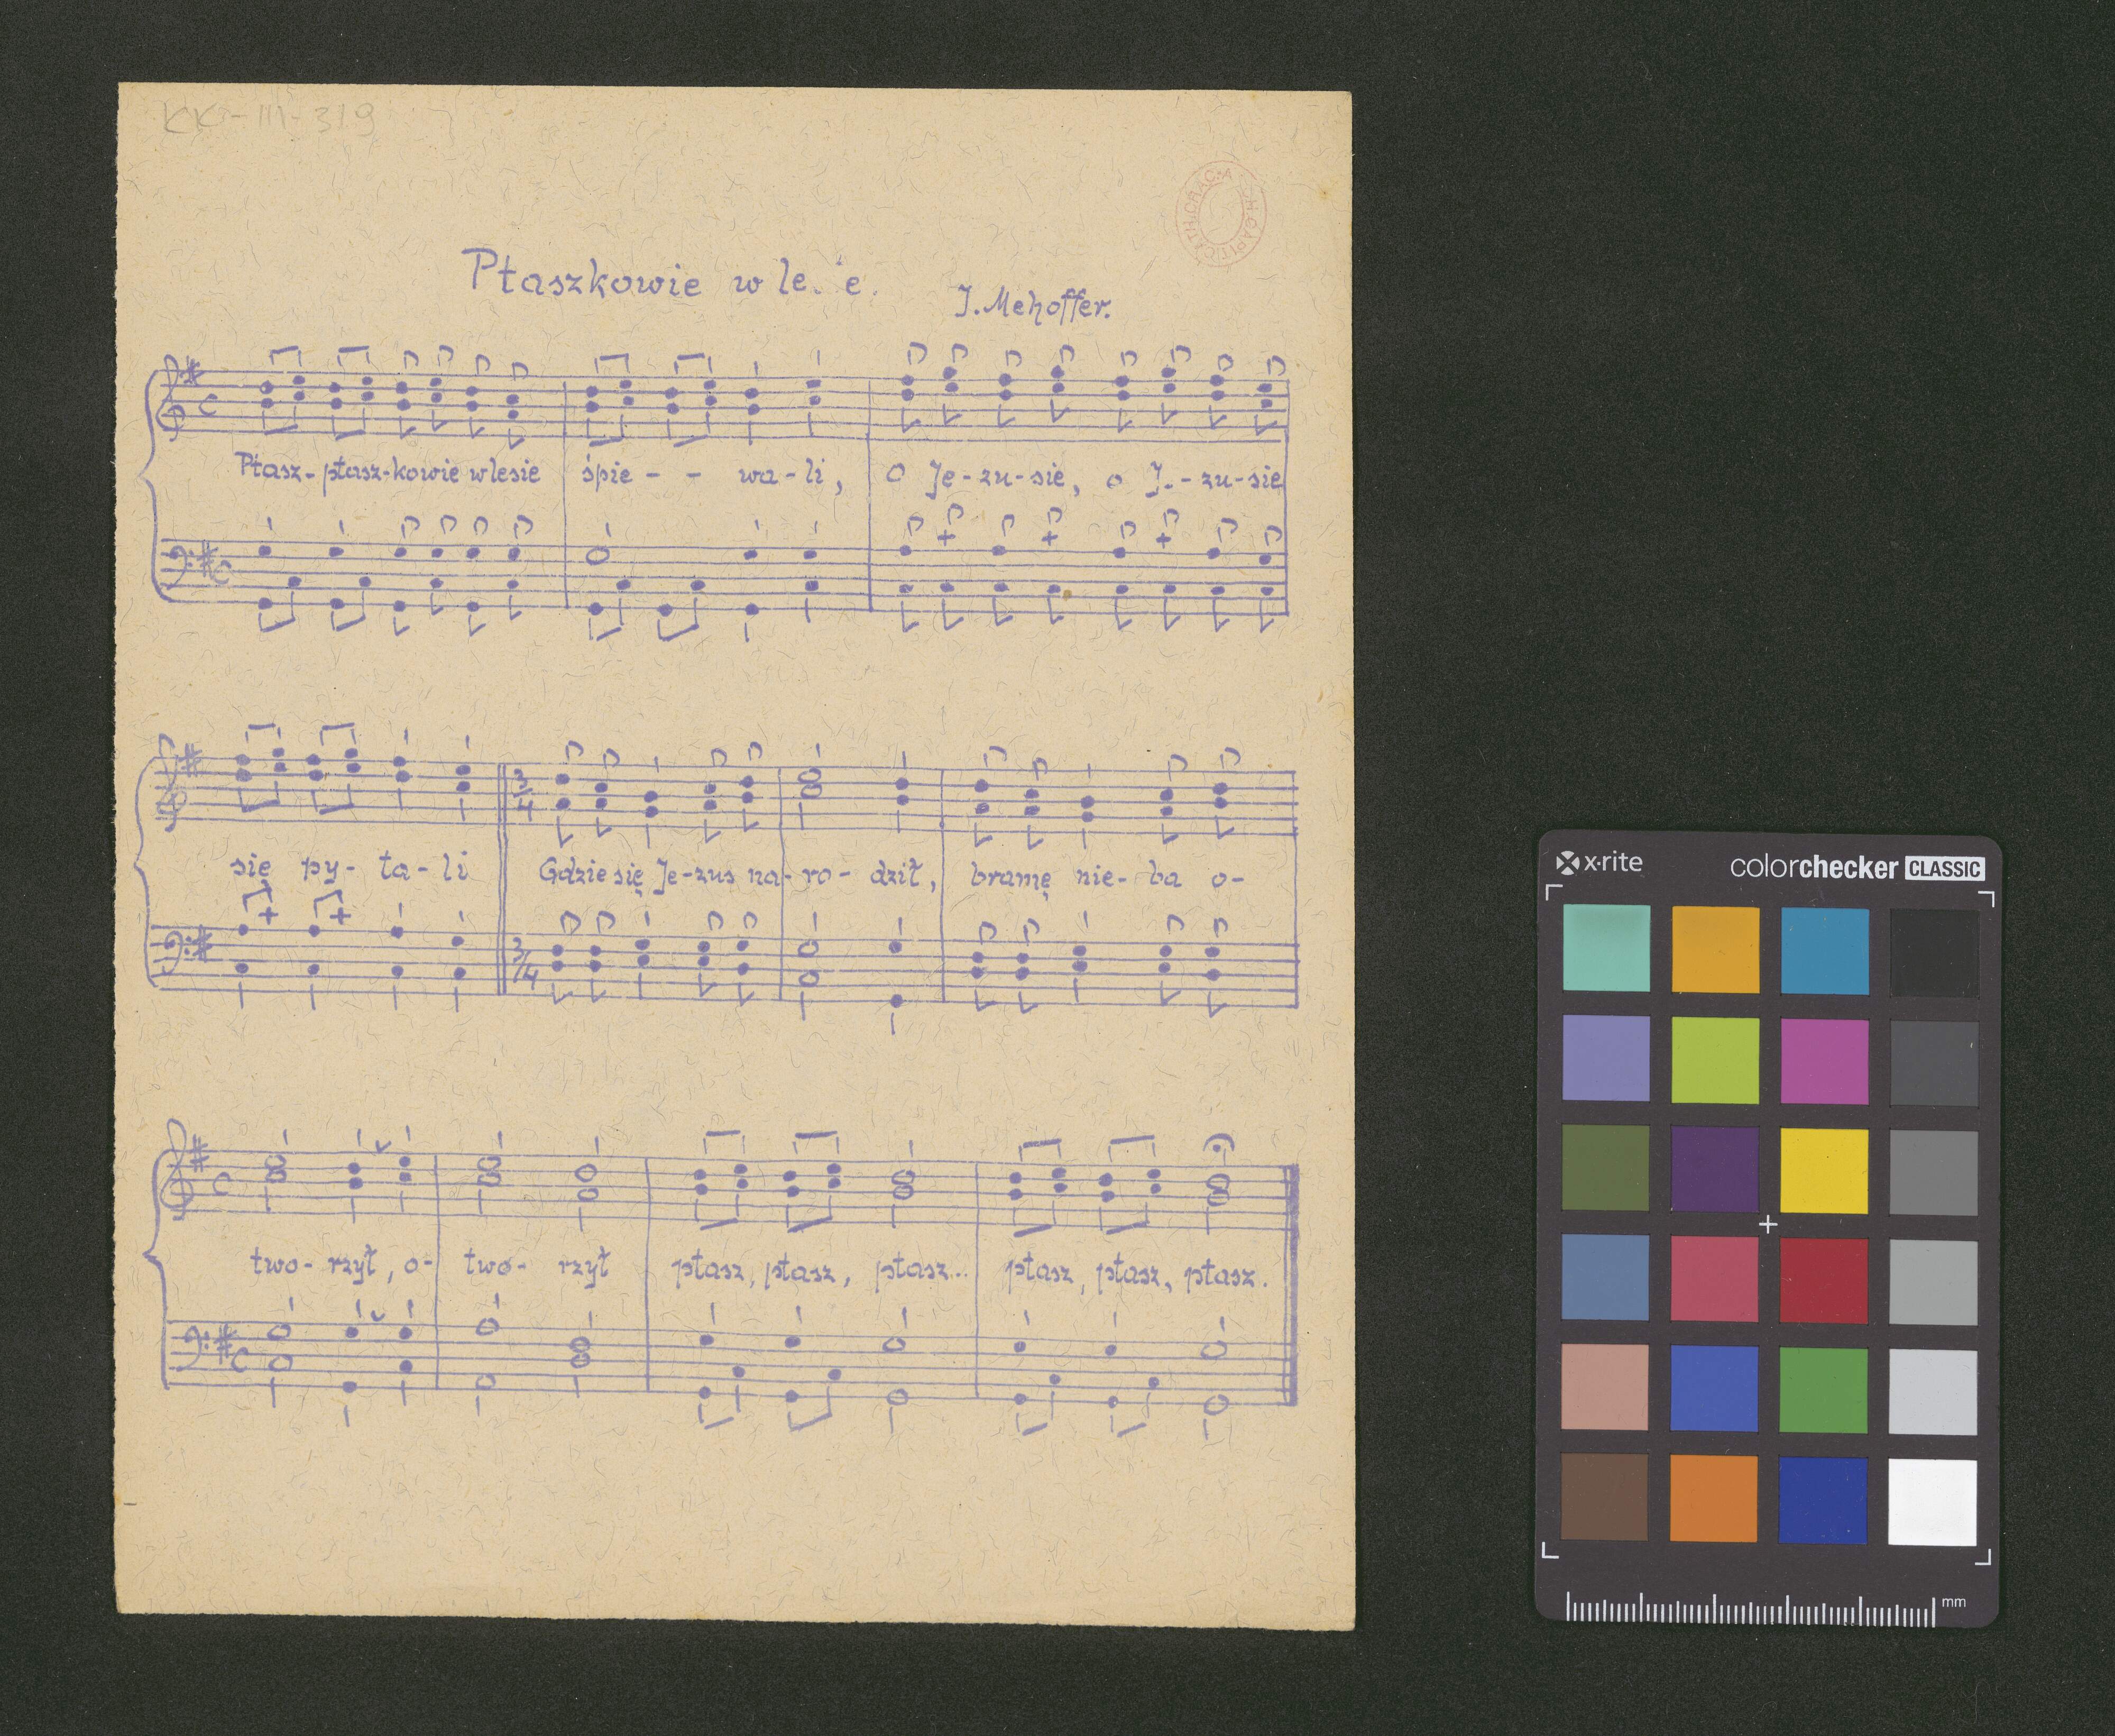 KK-III-319
Ptaszkowie w le. e.
J. Mehoffer.
Ptasz-ptasz-kowie w lesie śpie - - wa-li, o Je-zu-sie, o J.-zu-sie
się py-ta-li Gdzie się Je-zus na-ro-dził, bramę nie-ba o-
3/4
3/4
two-rzył, o-two-rzył ptasz, ptasz, ptasz... ptasz, ptasz, ptasz.
x-rite
colorchecker CLASSIC
mm